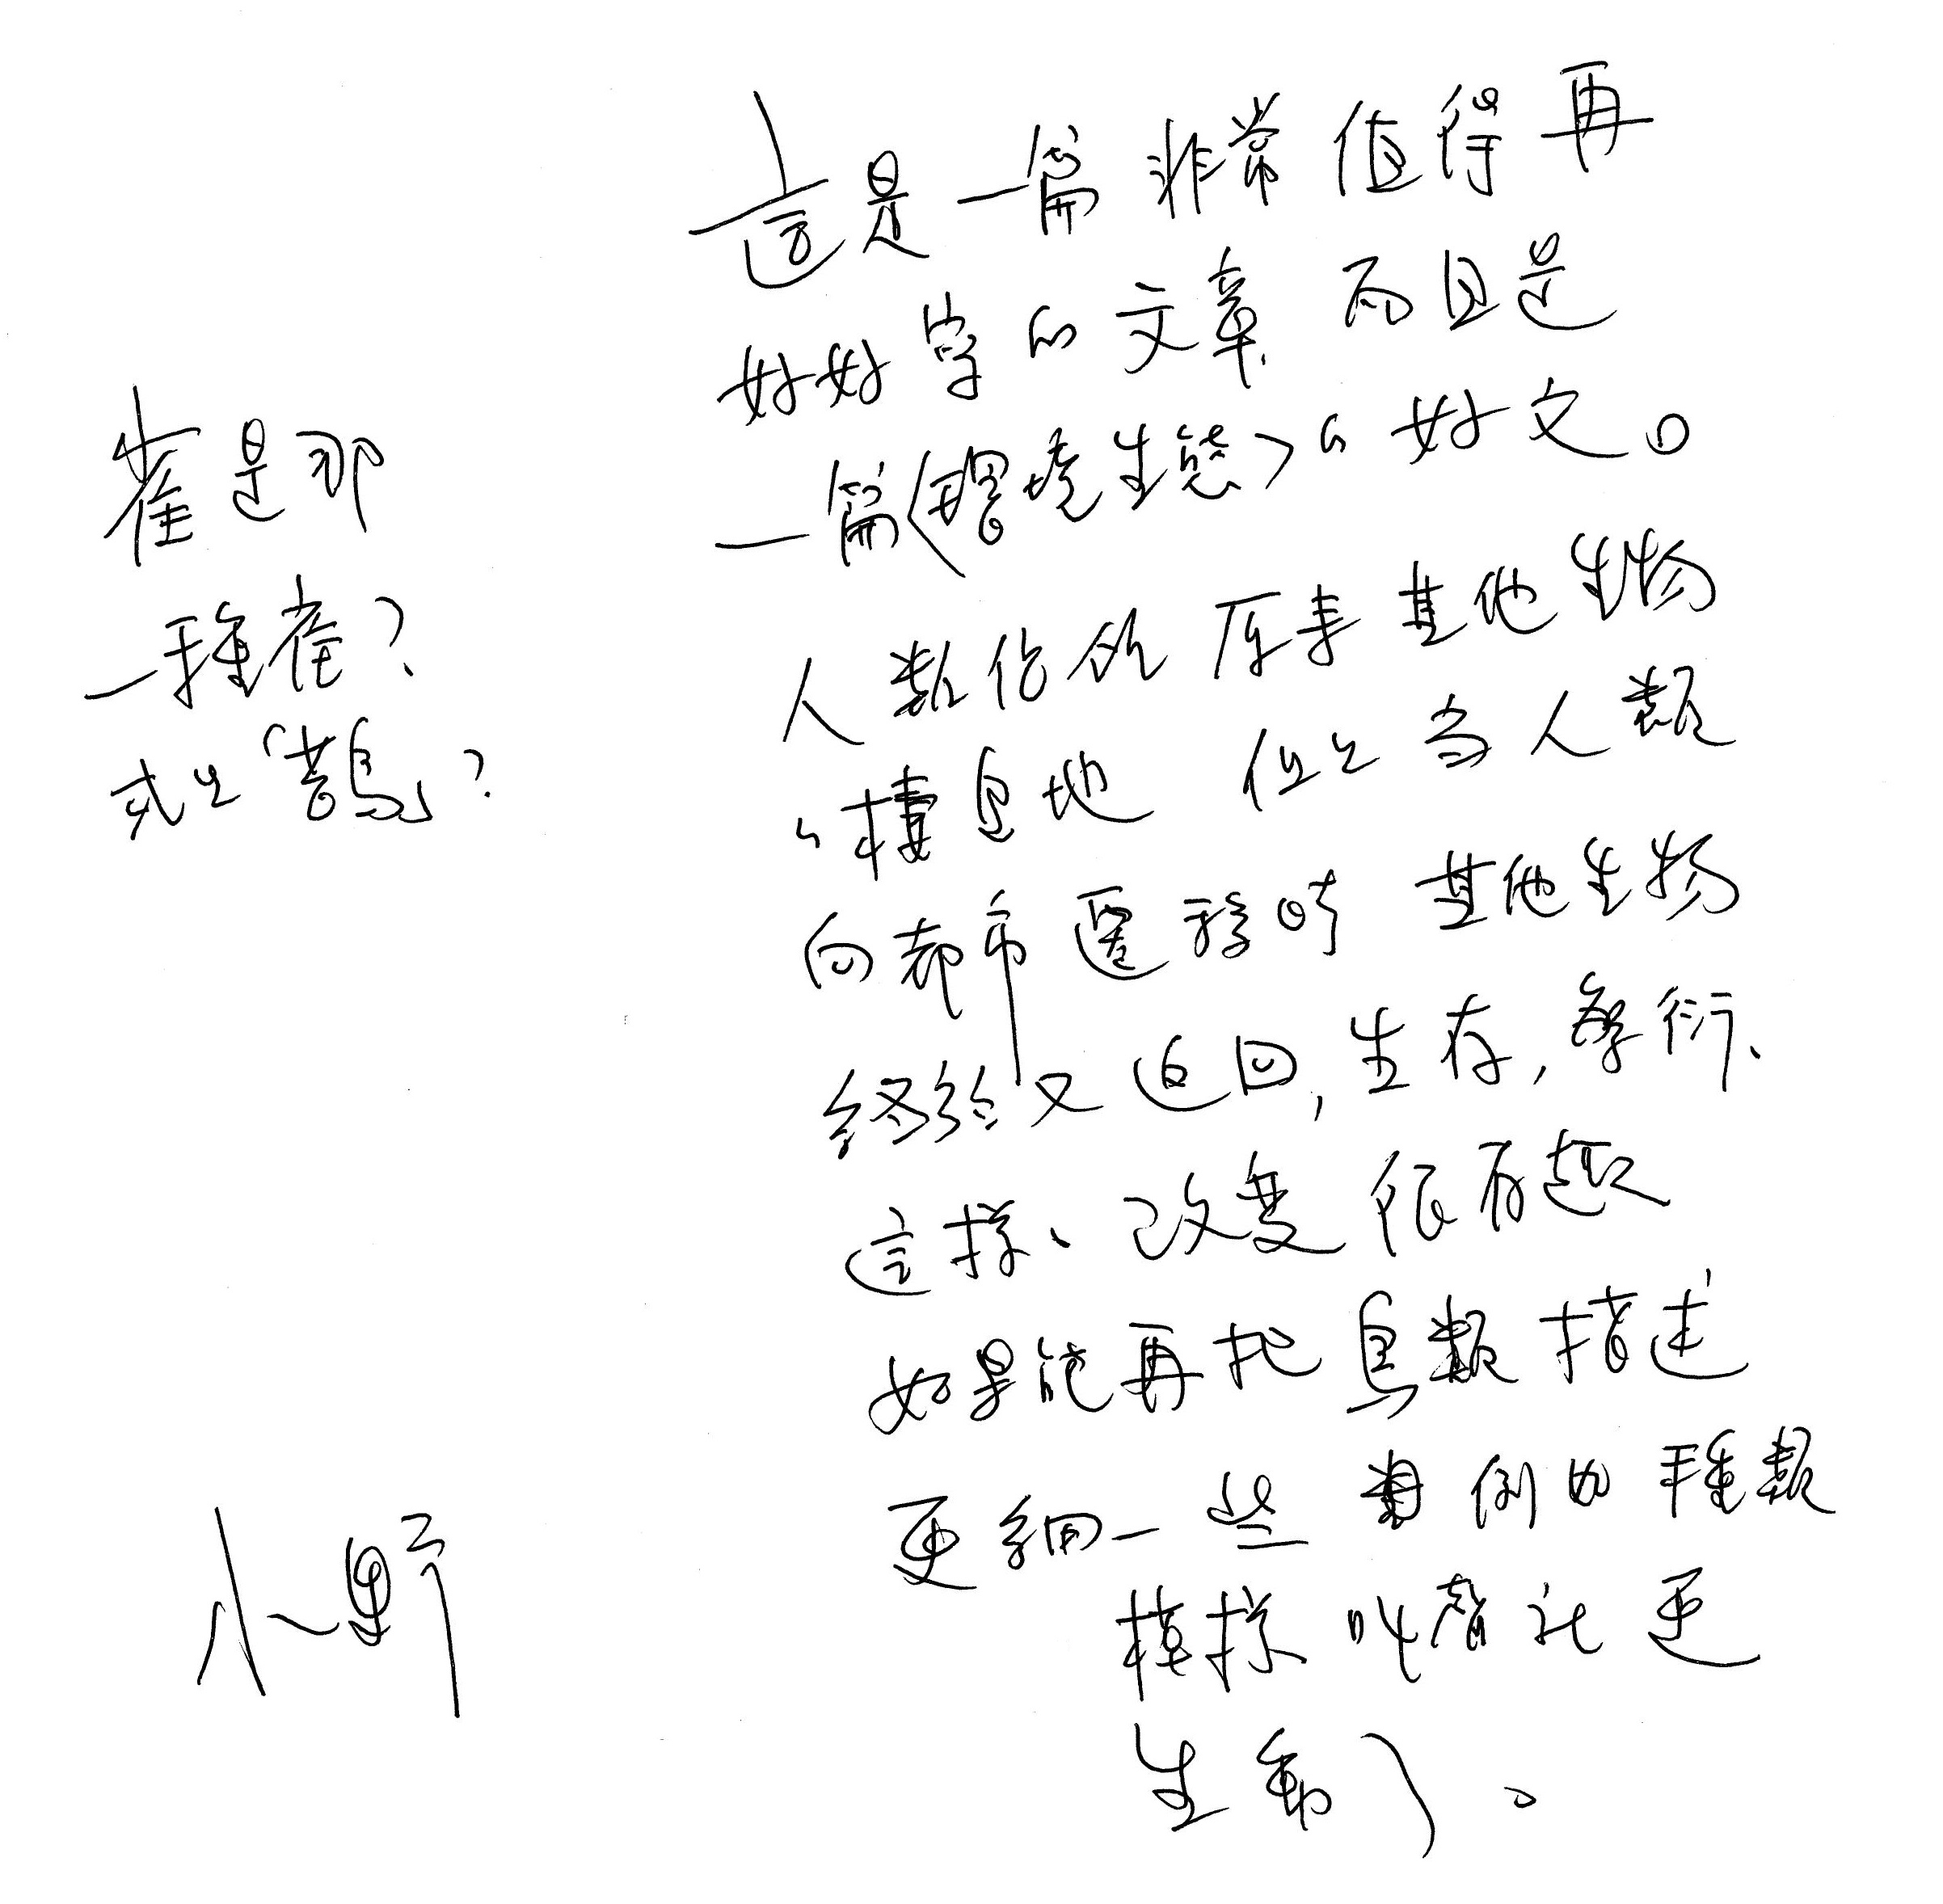 這是一篇非常值得再
好好寫的文章,而且是
一篇〈環境生態〉的好文。
人類佔領原本其他生物
的棲息地 但是當人類
向都市遷移時 其他生物
終於又返回,生存,繁衍、
這樣、改變很有趣
如果能再把鳥類描述
更細一些 例如種類
模樣 叫聲 就更
生動了。
雀是那
一種雀?
或是「鵲」?
小野